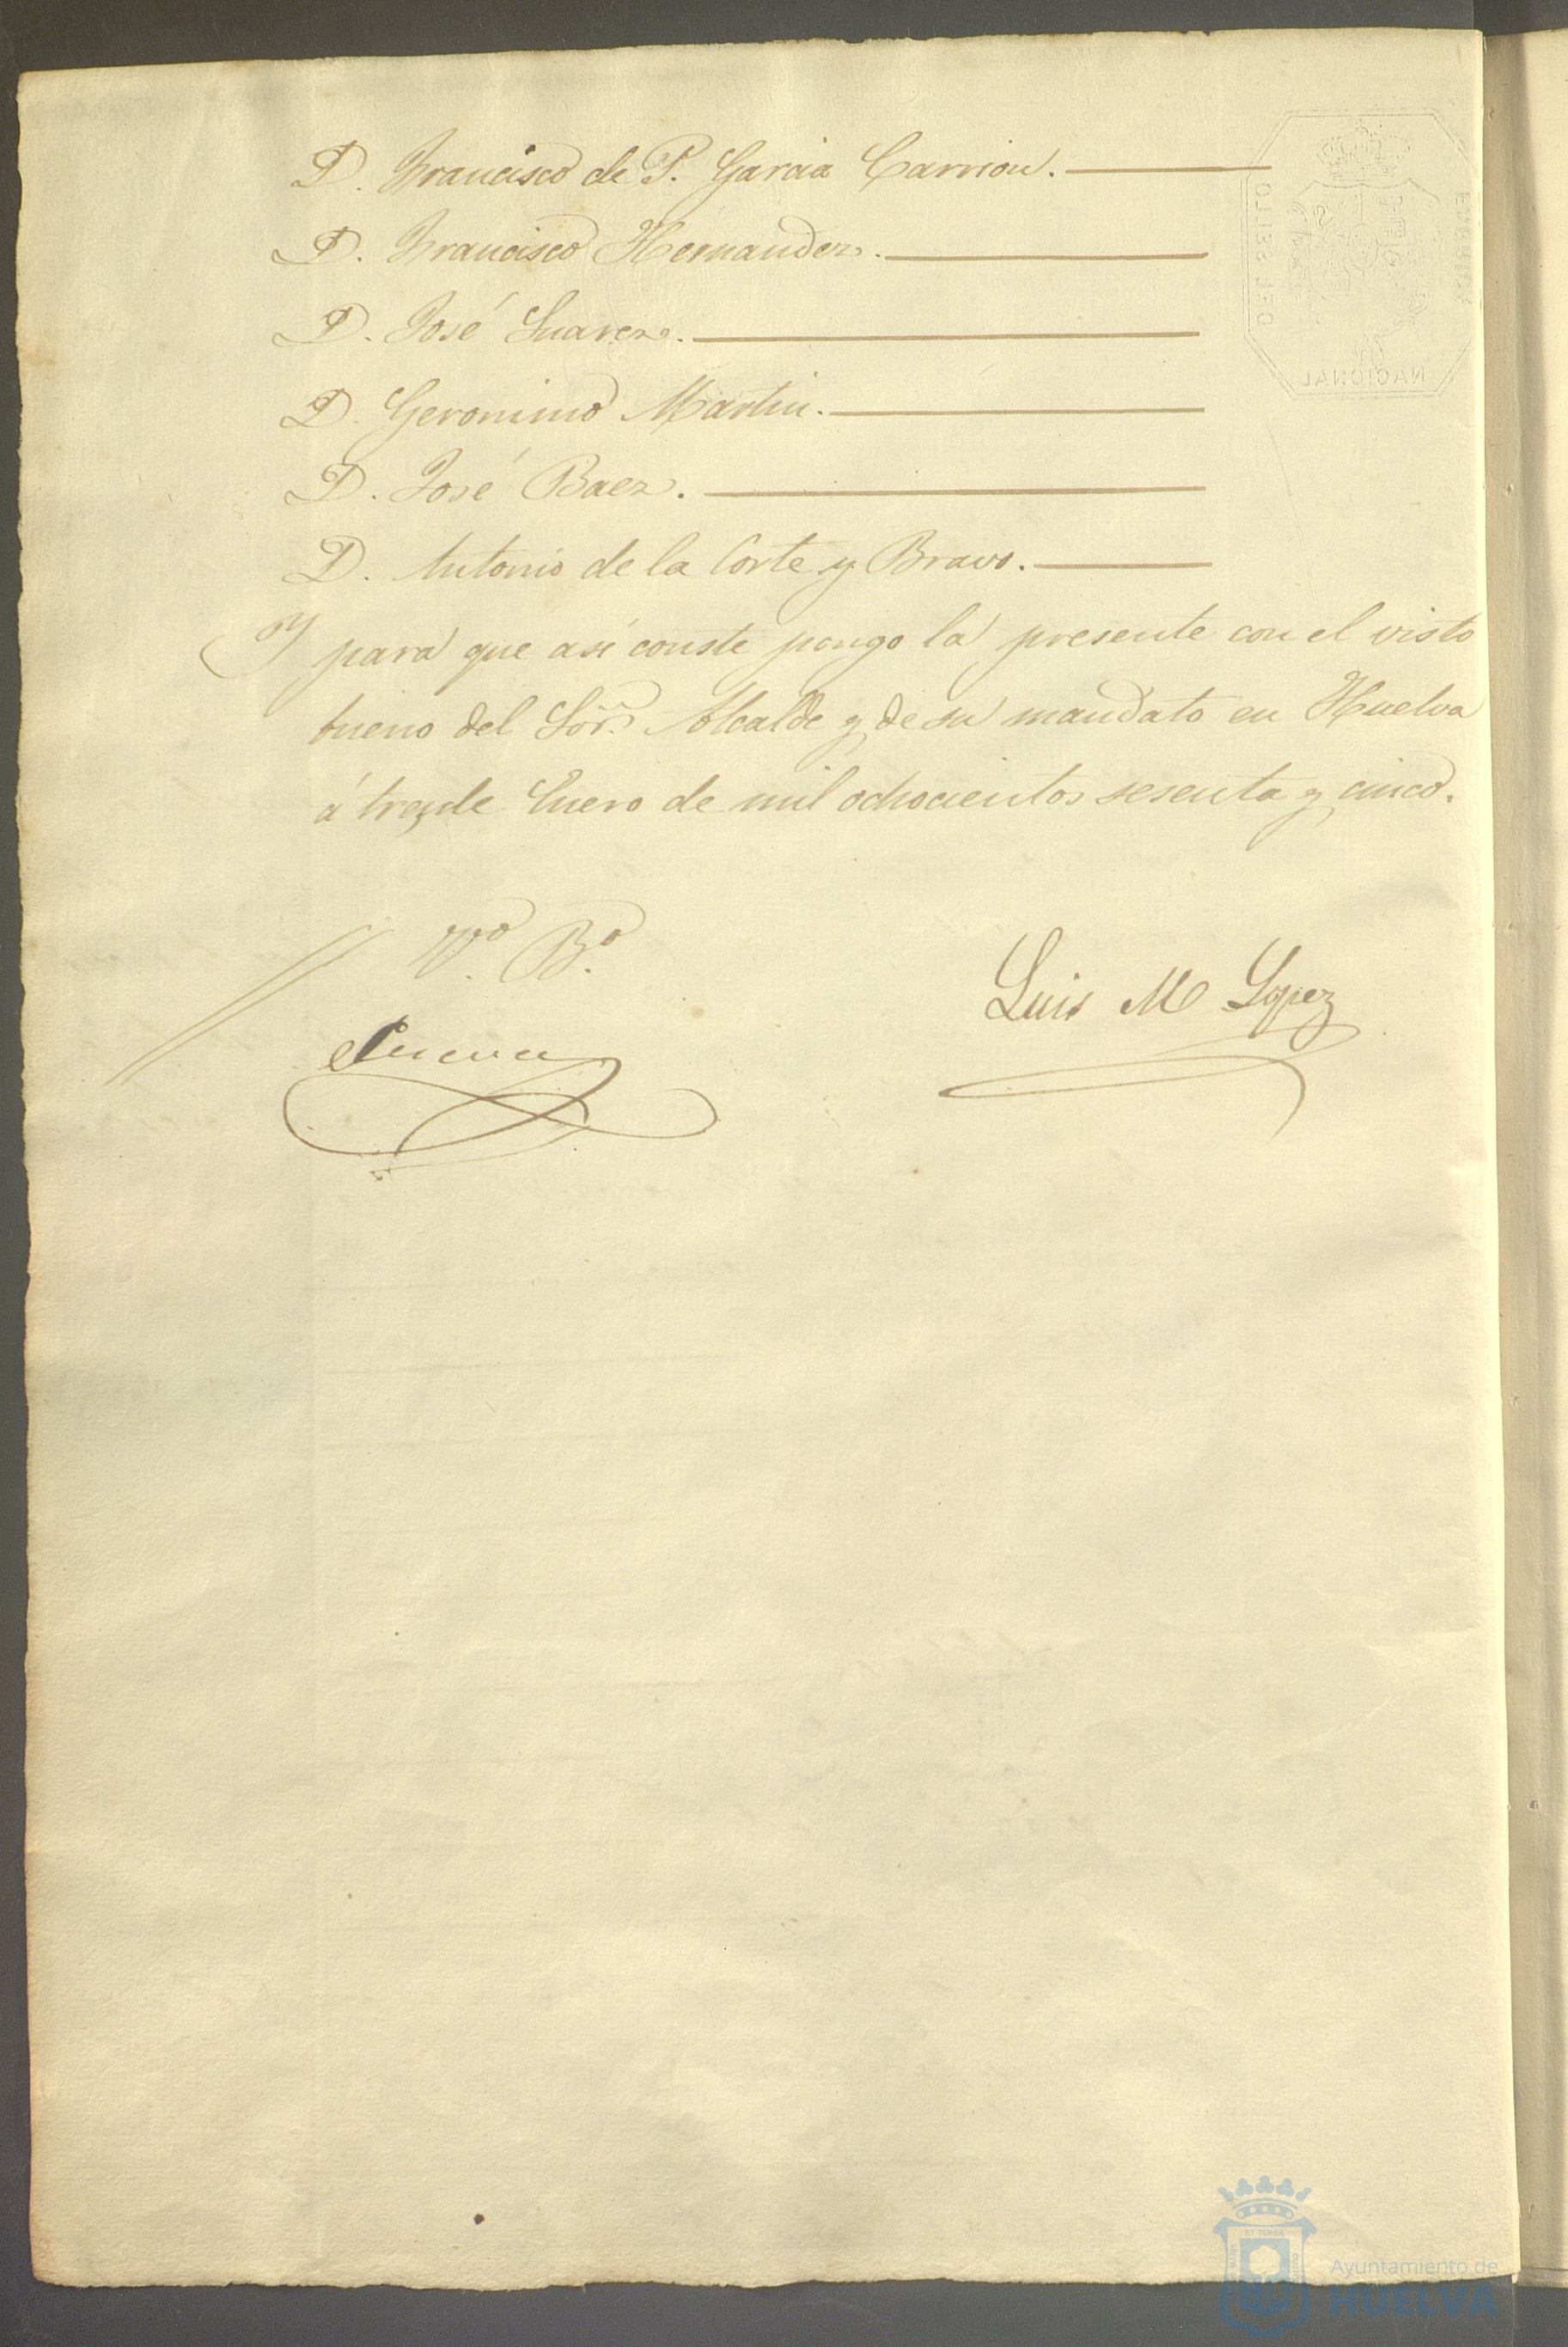 D. Francisco de P. Garcia Carrion.
D. Francisco Hernandez.
D. José Suarez.
D. Geronimo Martin.
D. José Baez.
D. Antonio de la Corte y Bravo.
Y para que asi conste pongo la presente con el visto
bueno del Sor. Alcalde y de su mandato en Huelva
á trece de Enero de mil ochocientos sesenta y cinco.
Vº. Bº.
Luis M Lopez
NACIONAL
DEL SELLO
Ayuntamiento de
HUELVA